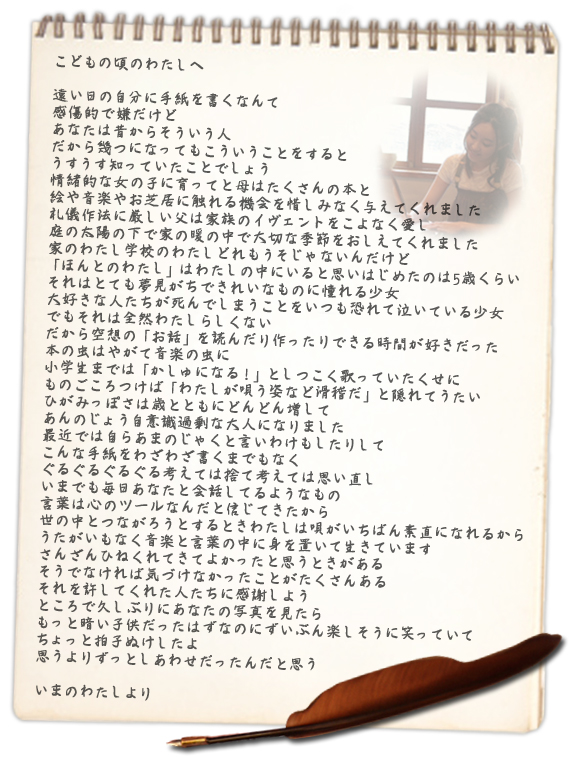 こどもの頃のわたしへ
遠い日の自分に手紙を書くなんて
感傷的で嫌だけど
あなたは昔からそういう人
だから幾つになってもこういうことをすると
うすうす知っていたことでしょう
情緒的な女の子に育ってと母はたくさんの本と
絵や音楽やお芝居に触れる機会を惜しみなく与えてくれました
礼儀作法に厳しい父は家族のイヴェントをこよなく愛し
庭の太陽の下で家の暖の中で大切な季節をおしえてくれました
家のわたし学校のわたしどれもうそじゃないんだけど
「ほんとのわたし」はわたしの中にいると思いはじめたのは5歳くらい
それはとても夢見がちできれいなものに憧れる少女
大好きな人たちが死んでしまうことをいつも恐れて泣いている少女
でもそれは全然わたしらしくない
だから空想の「お話」を読んだり作ったりできる時間が好きだった
本の虫はやがて音楽の虫に
小学生までは「かしゅになる！」としつこく歌っていたくせに
ものごころつけば「わたしが唄う姿など滑稽だ」と隠れてうたい
ひがみっぽさは歳とともにどんどん増して
あんのじょう自意識過剰な大人になりました
最近では自らあまのじゃくと言いわけもしたりして
こんな手紙をわざわざ書くまでもなく
ぐるぐるぐるぐる考えては捨て考えては思い直し
いまでも毎日あなたと会話してるようなもの
言葉は心のツールなんだと信じてきたから
世の中とつながろうとするときわたしは唄がいちばん素直になれるから
うたがいもなく音楽と言葉の中に身を置いて生きています
さんざんひねくれてきてよかったと思うときがある
そうでなければ気づけなかったことがたくさんある
それを許してくれた人たちに感謝しよう
ところで久しぶりにあなたの写真を見たら
もっと暗い子供だったはずなのにずいぶん楽しそうに笑っていて
ちょっと拍子ぬけしたよ
思うよりずっとしあわせだったんだと思う
いまのわたしより